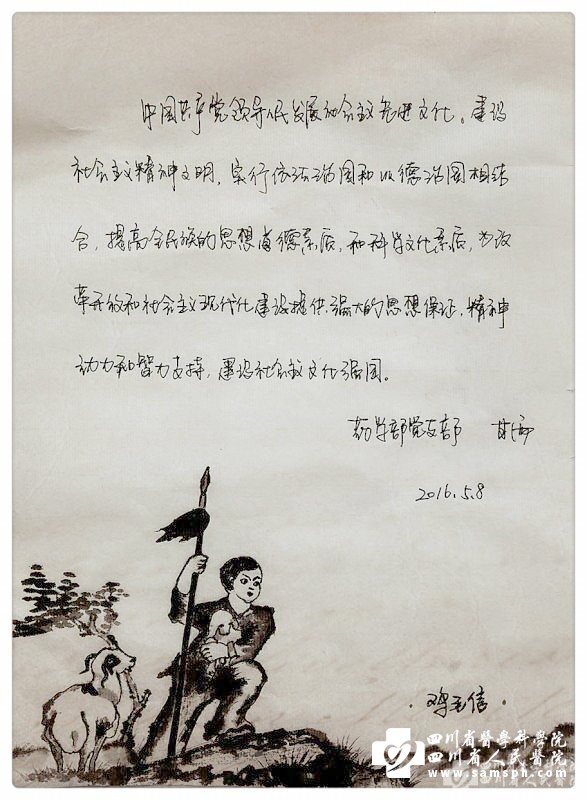 中国共产党领导人民发展社会主义先进文化。建设
社会主义精神文明，实行依法治国和以德治国相结
合，提高全民族的思想道德素质和科学文化素质，为改
革开放和社会主义现代化建设提供强大的思想保证，精神
动力和智力支持，建设社会主义文化强国。
药学部党支部
2016.5.8
·鸡毛信·
四川省醫學科學院
四川省人民醫院
www.samsph.com